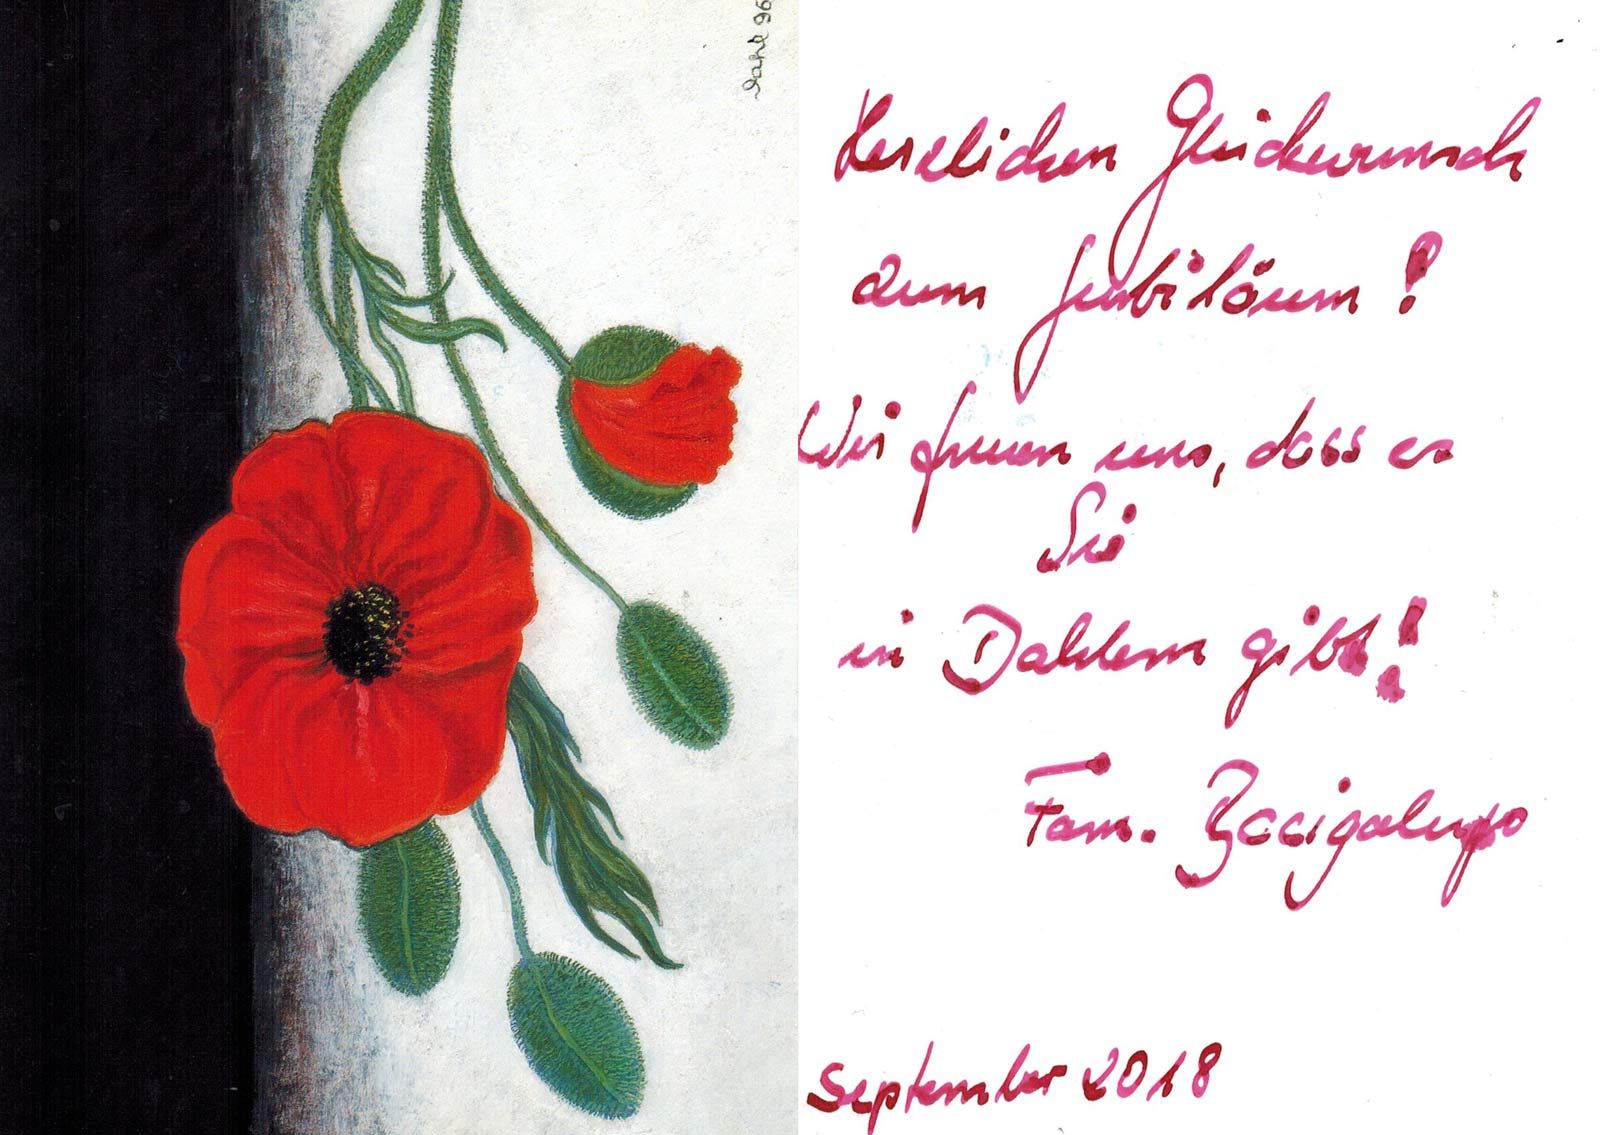 Herzlichen Glückwunsch
zum Jubiläum!
Wir freuen uns, dass es
Sie
in Dahlem gibt!
Fam. Bacigalupo
September 2018
Dahl 96